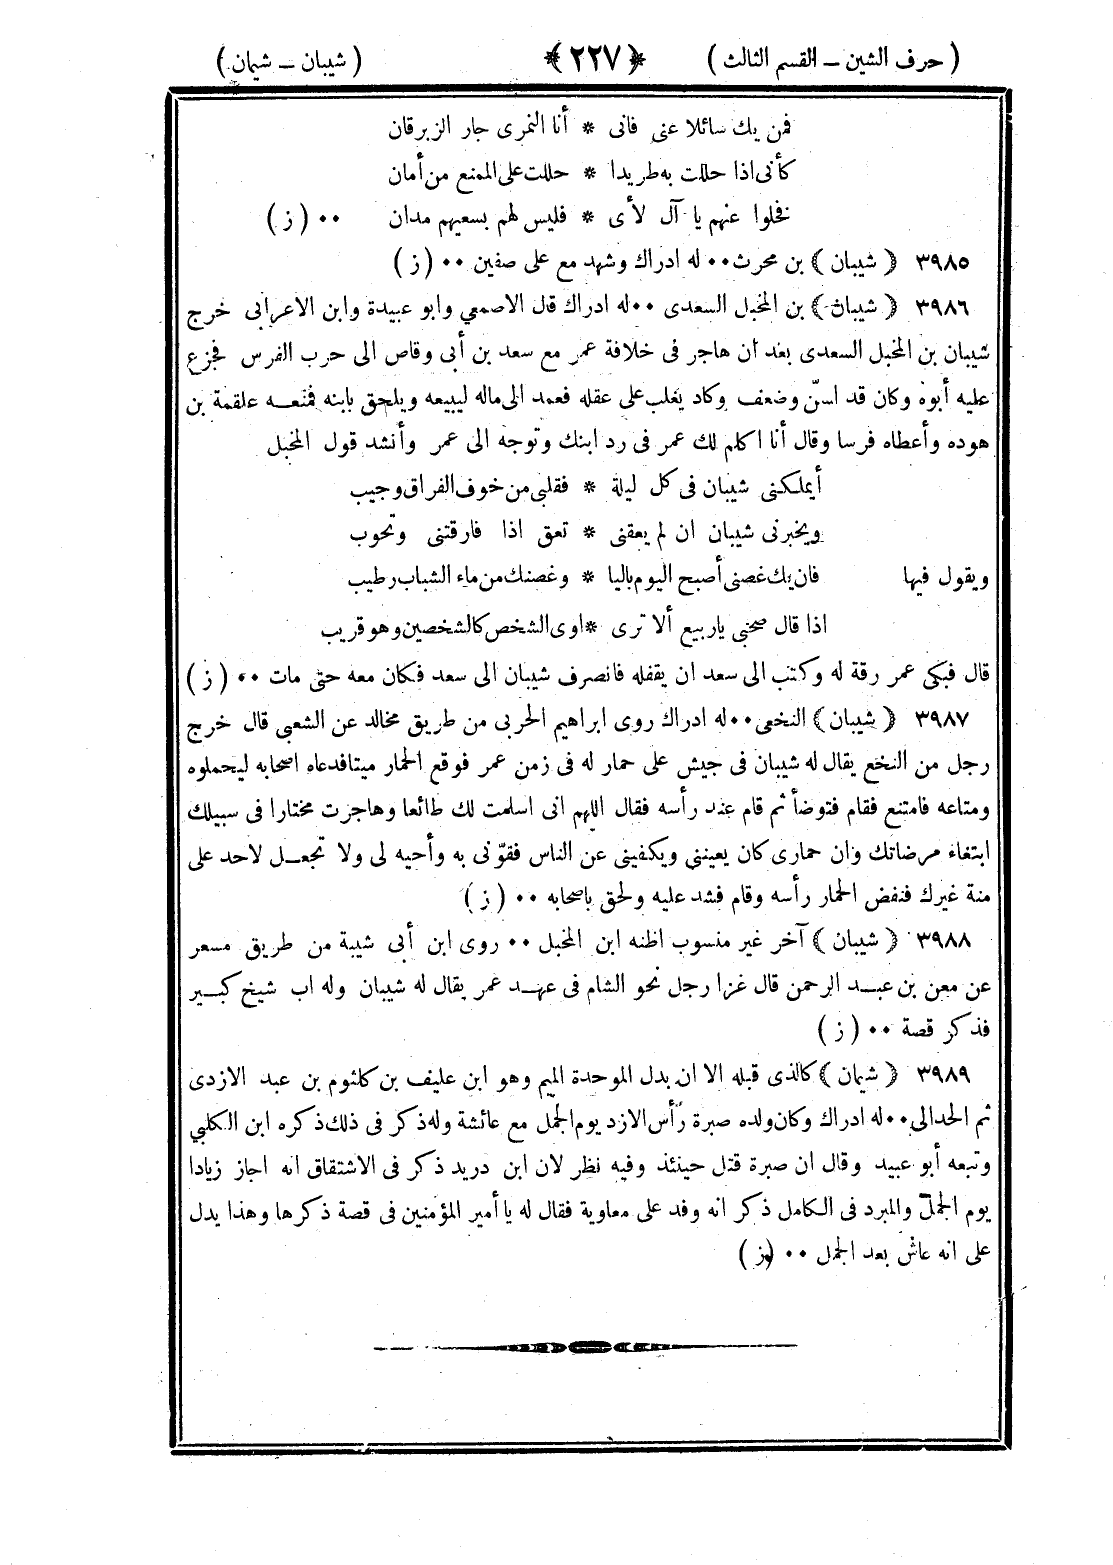 ( حرف الشين ــ القسم الثالث ) ﴿ ٢٢٧ ﴾ ( شيبان ــ شيمان )
فمن يك سائلا عنى فانى * أنا النمرى جار الزبرقان
كأنى اذا حللت به طريدا * حللت على الممنع من أمان
فخلوا عنهم يا آل لأى * فليس لهم بسعيهم مدان ٠٠ ( ز )
٣٩٨٥ ﴿ شيبان ﴾ بن محرث ٠٠ له ادراك وشهد مع على صفين ٠٠ ( ز )
٣٩٨٦ ﴿ شيبان ﴾ بن المخبل السعدى ٠٠ له ادراك قال الاصمعي وابو عبيدة وابن الاعرابى خرج
شيبان بن المخبل السعدى بعد ان هاجر فى خلافة عمر مع سعد بن أبى وقاص الى حرب الفرس فجزع
عليه أبوه وكان قد اسنّ وضعف وكاد يغلب على عقله فعمد الى ماله ليبيعه ويلحق بابنه فمنعـه علقمة بن
هوده وأعطاه فرسا وقال أنا اكلم لك عمر فى رد ابنك وتوجه الى عمر وأنشد قول المخبل
أيملكنى شيبان فى كل ليلة * فقلبى من خوف الفراق وجيب
ويخبرنى شيبان ان لم يعقنى * تعق اذا فارقتنى وتحوب
ويقول فيها فان يك غصنى أصبح اليوم باليا * وغصنك من ماء الشباب رطيب
اذا قال صحبي ياربيع ألا ترى * اوى الشخص كالشخصين وهو قريب
قال فبكى عمر رقة له وكتب الى سعد ان يقفله فانصرف شيبان الى سعد فكان معه حتى مات ٠٠ ( ز )
٣٩٨٧ ﴿ شيبان ﴾ النخعى ٠٠ له ادراك روى ابراهيم الحربى من طريق مخالد عن الشعبي قال خرج
رجل من النخع يقال له شيبان فى جيش على حمار له فى زمن عمر فوقع الحمار ميتا فدعاه اصحابه ليحملوه
ومتاعه فامتنع فقام فتوضأ ثم قام عند رأسه فقال اللهم انى اسلمت لك طائعا وهاجرت مختارا فى سبيلك
ابتغاء مرضاتك وان حمارى كان يعيننى ويكفينى عن الناس فقوّنى به وأحيه لى ولا تجعـل لاحد على
منة غيرك فنفض الحمار رأسه وقام فشد عليه ولحق باصحابه ٠٠ ( ز )
٣٩٨٨ ﴿ شيبان ﴾ آخر غير منسوب اظنه ابن المخبل ٠٠ روى ابن أبى شيبة من طريق مسعر
عن معن بن عبـد الرحمن قال غزا رجل نحو الشام فى عهـد عمر يقال له شيبان وله اب شيخ كبـير
فذكر قصة ٠٠ ( ز )
٣٩٨٩ ﴿ شيمان ﴾ كالذى قبله الا ان بدل الموحدة الميم وهو ابن عليف بن كلثوم بن عبد الازدى
ثم الحدالى ٠٠ له ادراك وكان ولده صبرة رأس الازد يوم الجمل مع عائشة وله ذكر فى ذلك ذكره ابن الكلبي
وتبعه أبو عبيد وقال ان صبرة قتل حينئذ وفيه نظر لان ابن دريد ذكر فى الاشتقاق انه اجاز زيادا
يوم الجمل والمبرد فى الكامل ذكر انه وفد على معاوية فقال له يا أمير المؤمنين فى قصة ذكرها وهذا يدل
على انه عاش بعد الجمل ٠٠ ( ز )